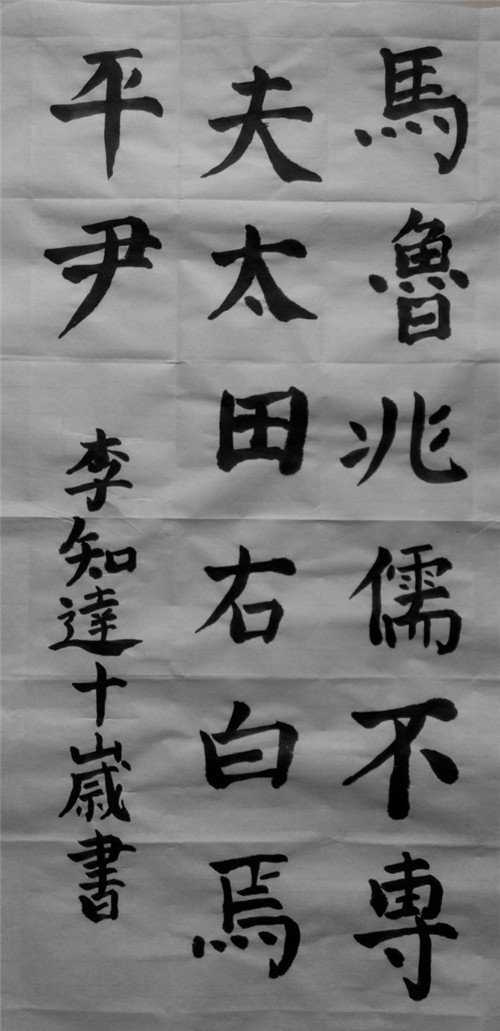 馬魯兆儒不専
夫太田右白焉
平尹
李知達十歲書